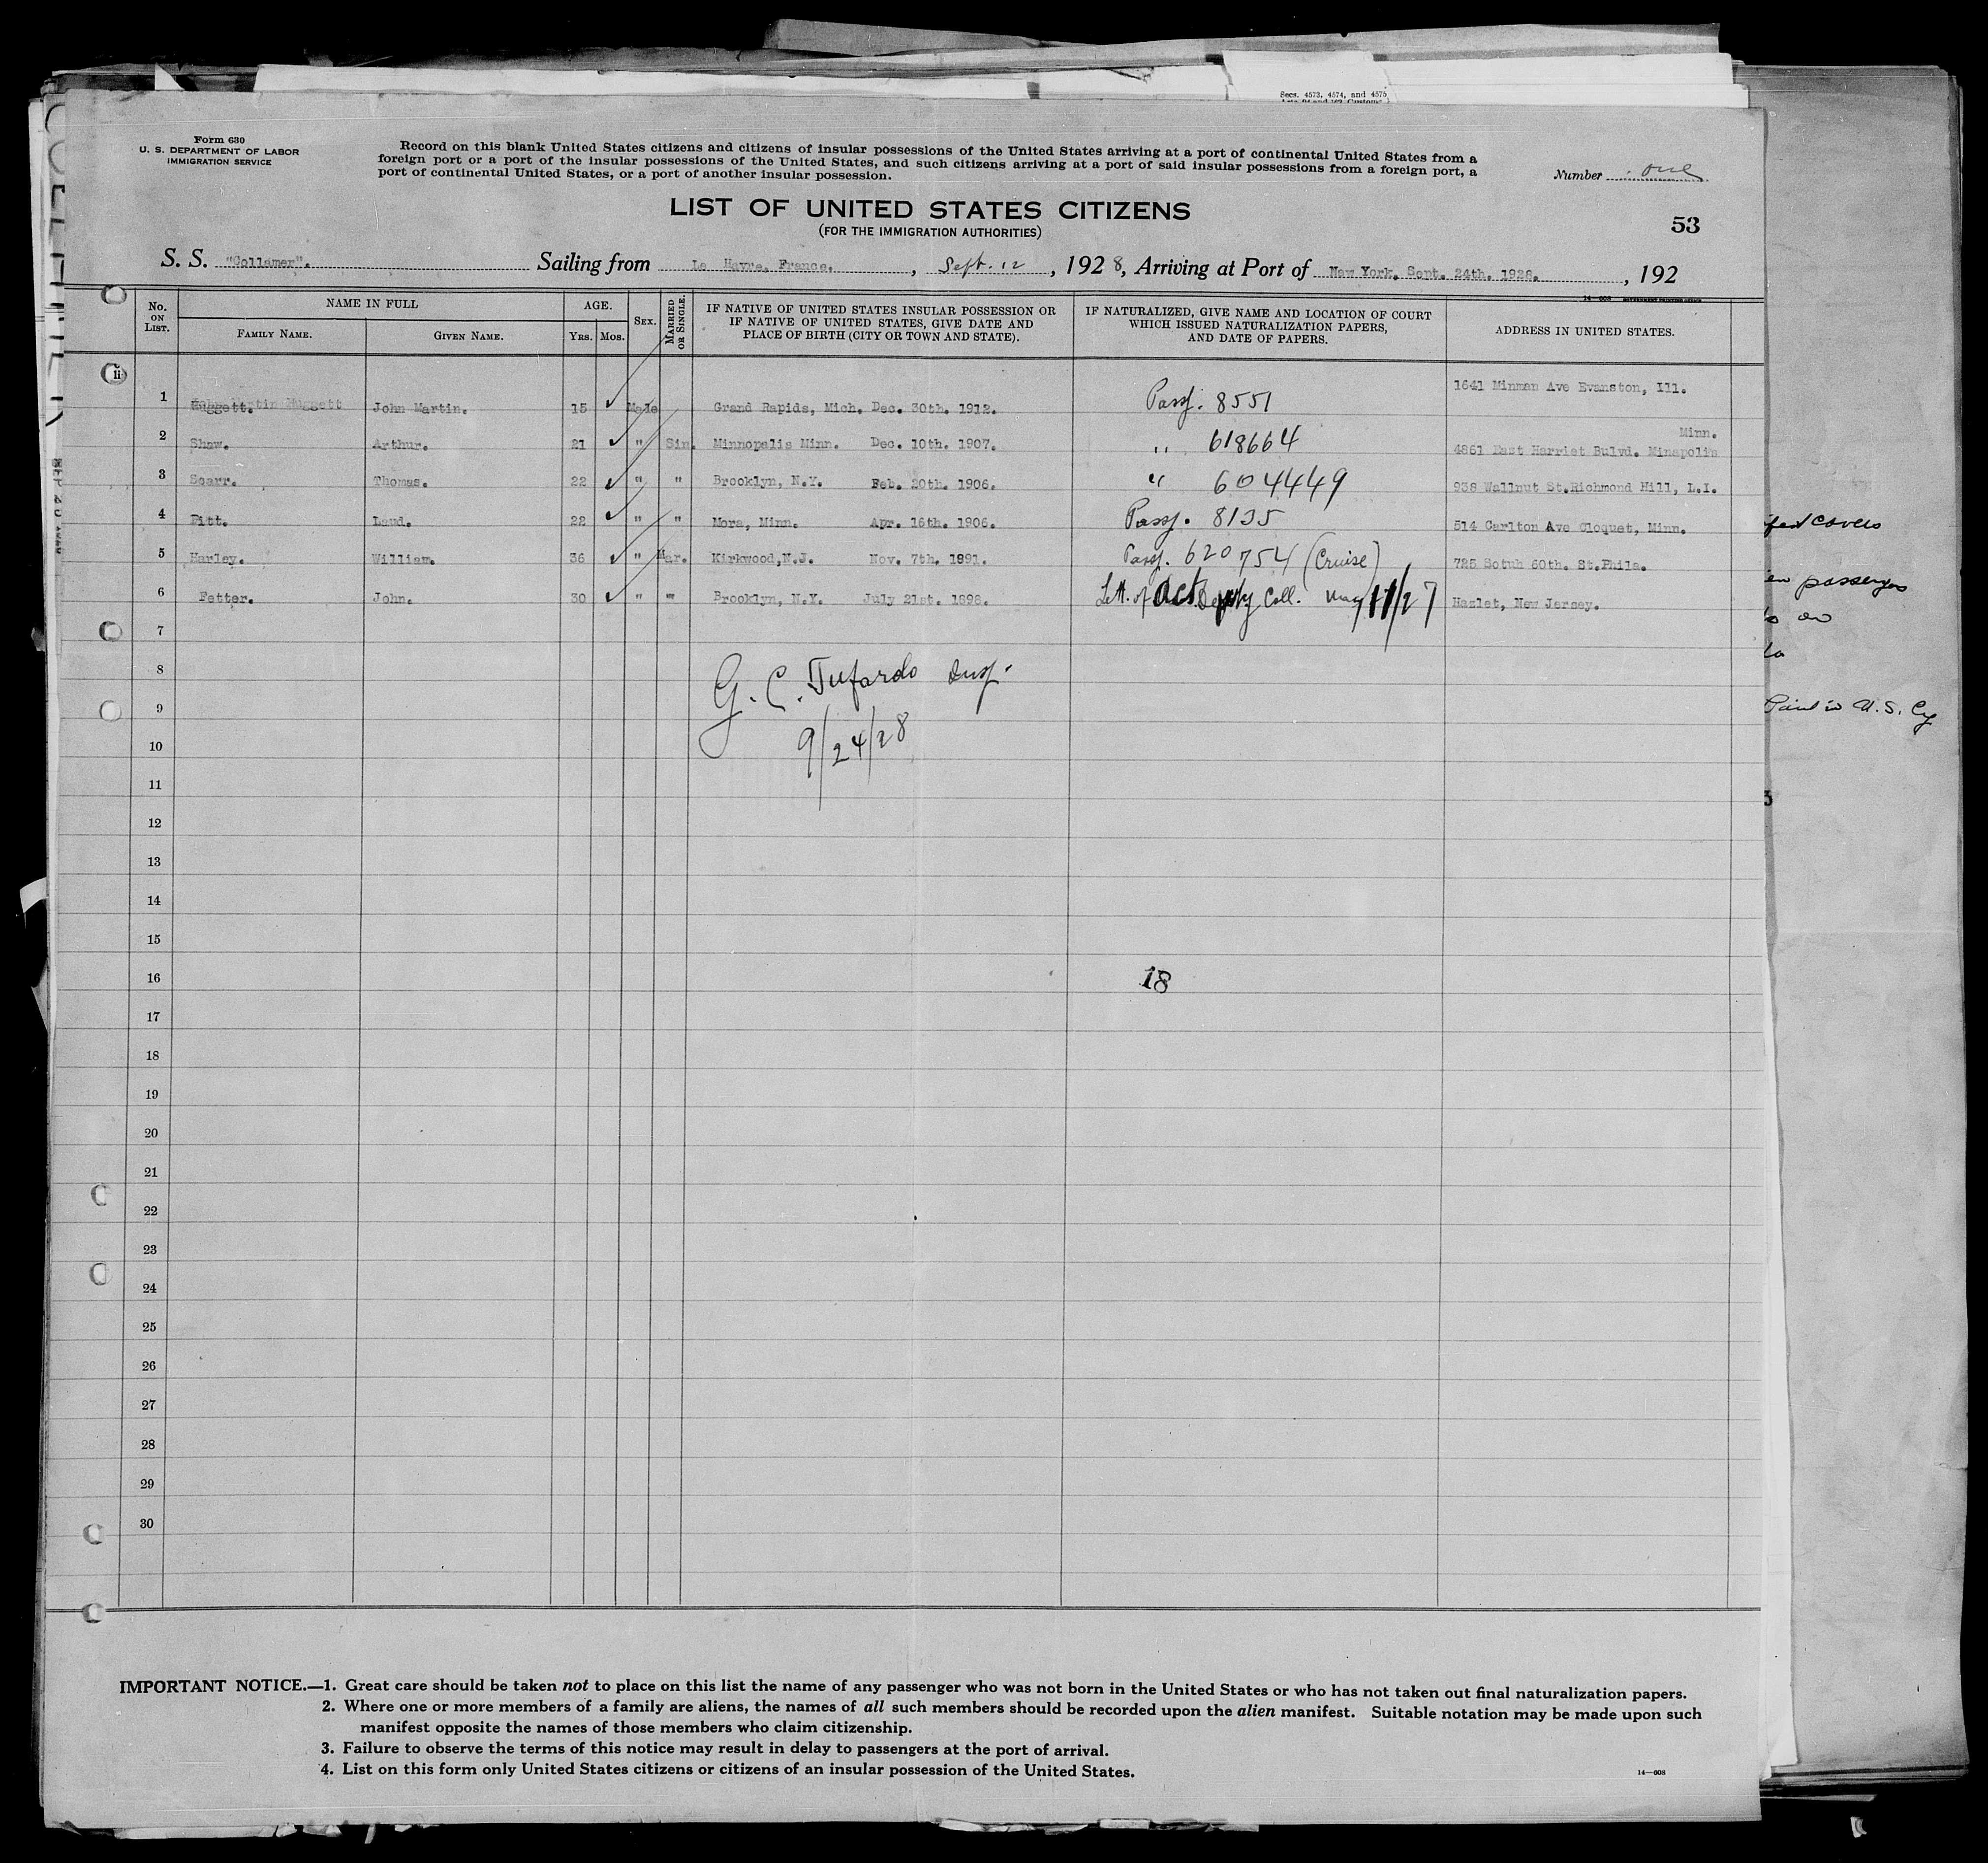 Secs. 4573, 4574, and 4575
Form 630
U. S. DEPARTMENT OF LABOR
IMMIGRATION SERVICE
Record on this blank United States citizens and citizens of insular possessions of the United States arriving at a port of continental United States from a
foreign port or a port of the insular possessions of the United States, and such citizens arriving at a port of said insular possessions from a foreign port, a
port of continental United States, or a port of another insular possession.
Number one
LIST OF UNITED STATES CITIZENS
(FOR THE IMMIGRATION AUTHORITIES)
53
S. S. "Collamer". Sailing from Le Havre, France. , Sept. 12 , 1928, Arriving at Port of New York. Sept. 24th. 1928. , 192
No. ON LIST. NAME IN FULL FAMILY NAME. GIVEN NAME. AGE. YRS. MOS. SEX. MARRIED OR SINGLE. IF NATIVE OF UNITED STATES INSULAR POSSESSION OR IF NATIVE OF UNITED STATES, GIVE DATE AND PLACE OF BIRTH (CITY OR TOWN AND STATE). IF NATURALIZED, GIVE NAME AND LOCATION OF COURT WHICH ISSUED NATURALIZATION PAPERS, AND DATE OF PAPERS. ADDRESS IN UNITED STATES.
1 Huggett. John Martin. 15 Male Grand Rapids, Mich. Dec. 30th. 1912. Passp. 8551 1641 Hinman Ave Evanston, Ill.
2 Shaw. Arthur. 21 " Sin. Minnopelis Minn. Dec. 10th. 1907. " 618664 4861 East Harriet Bulvd. Minapolis Minn.
3 Scarr. Thomas. 22 " " Brooklyn, N.Y. Feb. 20th. 1906. " 604449 938 Wallnut St.Richmond Hill, L.I.
4 Pitt. Laud. 22 " " Mora, Minn. Apr. 16th. 1906. Passp. 8135 514 Carlton Ave Cloquet, Minn.
5 Harley. William. 36 " Mar. Kirkwood,N.J. Nov. 7th. 1891. Passp. 620754 (Cruise) 725 Sotuh 60th. St.Phila.
6 Fetter. John. 30 " " Brooklyn, N.Y. July 21st. 1898. Lett. of Act. Deputy Coll. May 11/27 Hazlet, New Jersey.
7
8
G. C. Tufardo Insp.
9
9/24/28
10
11
12
13
14
15
16 18
17
18
19
20
21
22
23
24
25
26
27
28
29
30
IMPORTANT NOTICE.—1. Great care should be taken not to place on this list the name of any passenger who was not born in the United States or who has not taken out final naturalization papers.
2. Where one or more members of a family are aliens, the names of all such members should be recorded upon the alien manifest. Suitable notation may be made upon such
manifest opposite the names of those members who claim citizenship.
3. Failure to observe the terms of this notice may result in delay to passengers at the port of arrival.
4. List on this form only United States citizens or citizens of an insular possession of the United States.
14—608
covers
passengers
U. S. Cy